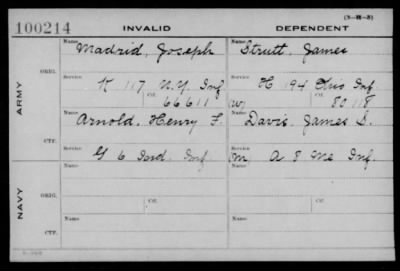 (3-H-3)
100214 INVALID DEPENDENT
Name Madrid, Joseph Name Strutt, James
ARMY ORIG. Service K 117 N.Y. Inf Service H 194 Ohio Inf
Ctf. 66611 (W) Ctf. 80118
CTF. Name Arnold, Henry F. Name Davis, James S.
Service G 6 Ind. Inf. Service (m) A 8 Me Inf.
NAVY ORIG. Name Name
Service Ctf. Service Ctf.
CTF. Name Name